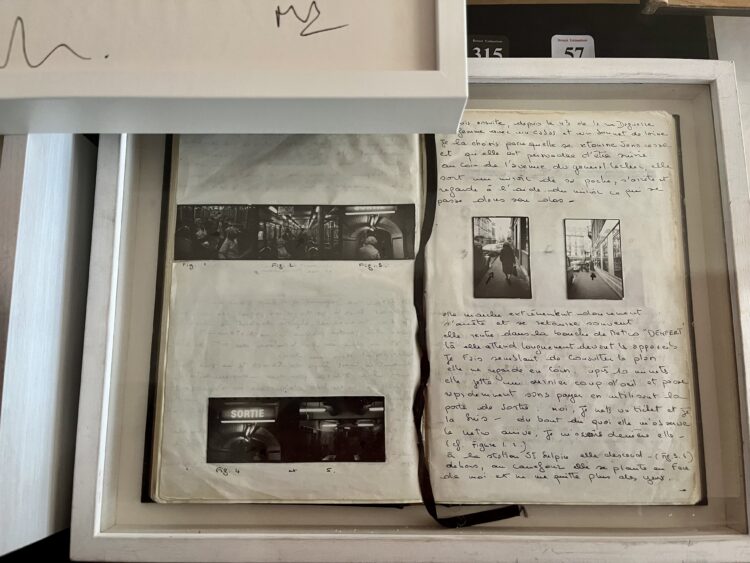 315
57
Fig. 1
Fig. 2
Fig. 3.
SORTIE
Fig. 4
et
5.
ensuite, depuis le 43 de la rue Daguerre
femme avec un caban et un bonnet de laine
Je la choisis parce qu'elle se retourne sans cesse
et qu'elle est persuadée d'être suivie
au coin de l'avenue du général Leclerc, elle
sort un miroir de sa poche, s'arrête et
regarde à l'aide du miroir ce qui se
passe dans son dos -
elle marche extrêmement
s'arrête et se retourne souvent
elle rentre dans la bouche de Metro "DENFERT
là elle attend longuement devant les appareils
Je fais semblant de consulter le plan
elle me regarde en coin. après 10 minutes
elle jette un dernier coup d'oeil et passe
rapidement sans payer en utilisant la
porte de sortie - moi, je mets un ticket et je
la suis - du bout du quai elle m'observe
le metro arrive. Je m'assois derrière elle -
(cf Figure 1.)
à la station St Sulpice elle descend - (Fig 5.)
dehors, au carrefour elle se plante en face
de moi et ne me quitte plus des yeux.